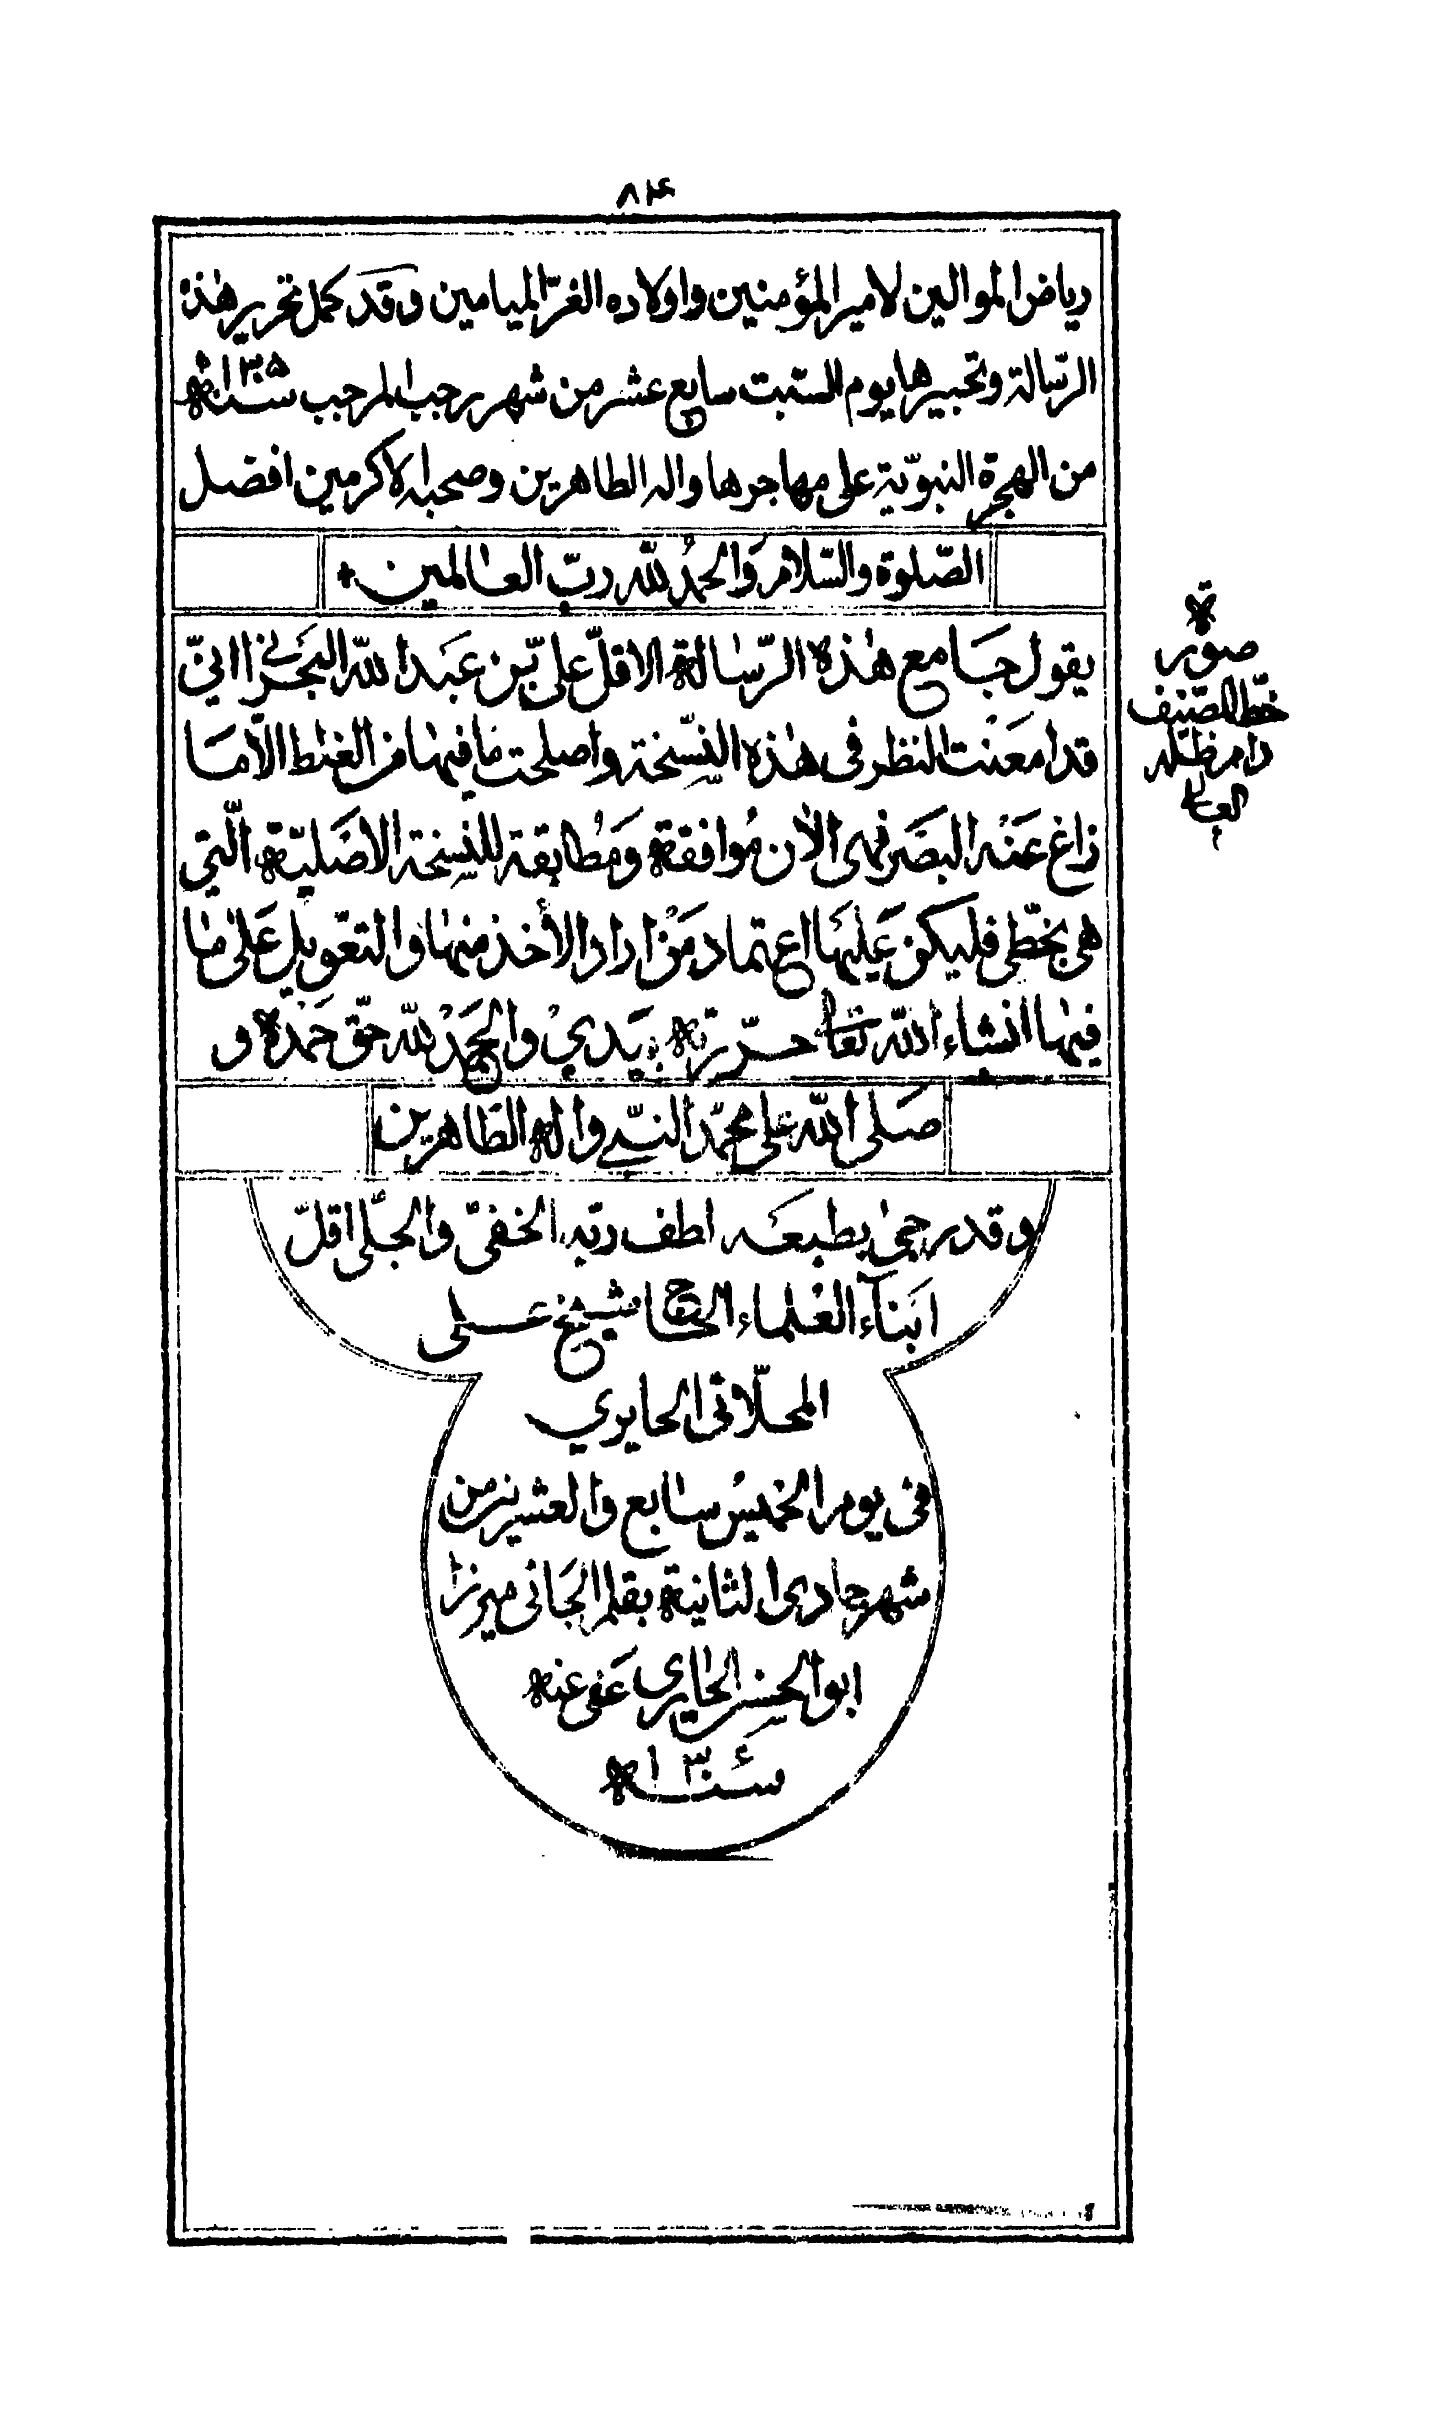 ۸۴
رياض الموالين لامير المؤمنين واولاده الغرّ الميامين وقد كمل تحرير هذه
الرّسالة وتحبيرها يوم السّبت سابع عشر من شهر رجب المرجب سنة ۱۳۰۵
من الهجرة النبويّة على مهاجرها واله الطاهرين وصحبه الاكرمين افضل
الصّلوة والسّلام وَالحمدُ للّه ربّ العالمين
يقول جامع هذه الرّسالة الاقلّ علىّ بن عَبد اللّه البَحَرانى انىّ
قد امعَنْت النظر فى هذه النّسخة واصلحت ما فيها من الغلط الاّ ما
زاغ عَنْه البصَر فهى الان مُوافقة وَمطابقة للنسخة الاصَليّة الّتى
هى بخطّى فليكن عَليَها اعتماد مَنْ اراد الأخذ منها والتعّويل عَلى ما
فيها انشاء اللّه تعَالى حرّرته بيَدي والحَمْدُ للّه حقّ حَمْده و
صَلى اللّه على محمّد النّبى واله الطّاهرين
صورة
خطّ المصّنف
دام ظلّه
العالى
وقد سعى بطبعَه لطف ربّه الخفىّ والجلّى اقلّ
ابَنآء العُلماء الحاج شيخ على
المحلّاتى الحايري
فى يوم الخميس سابع والعشرين من
شهر جمادى الثانية بقلم الجَانى ميرزا
ابو الحسن الحايري عَفى عنه
سنة ۱۳۰۶